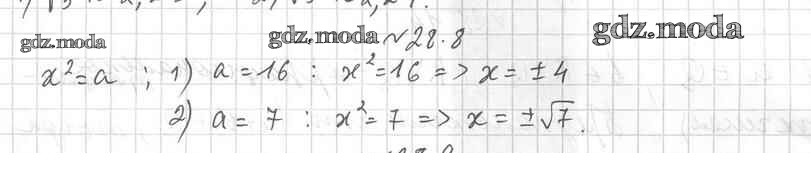 gdz.moda gdz.moda №28.8 gdz.moda
x²=a ; 1) a=16 : x²=16 => x=±4
2) a=7 : x²=7 => x=±√7.